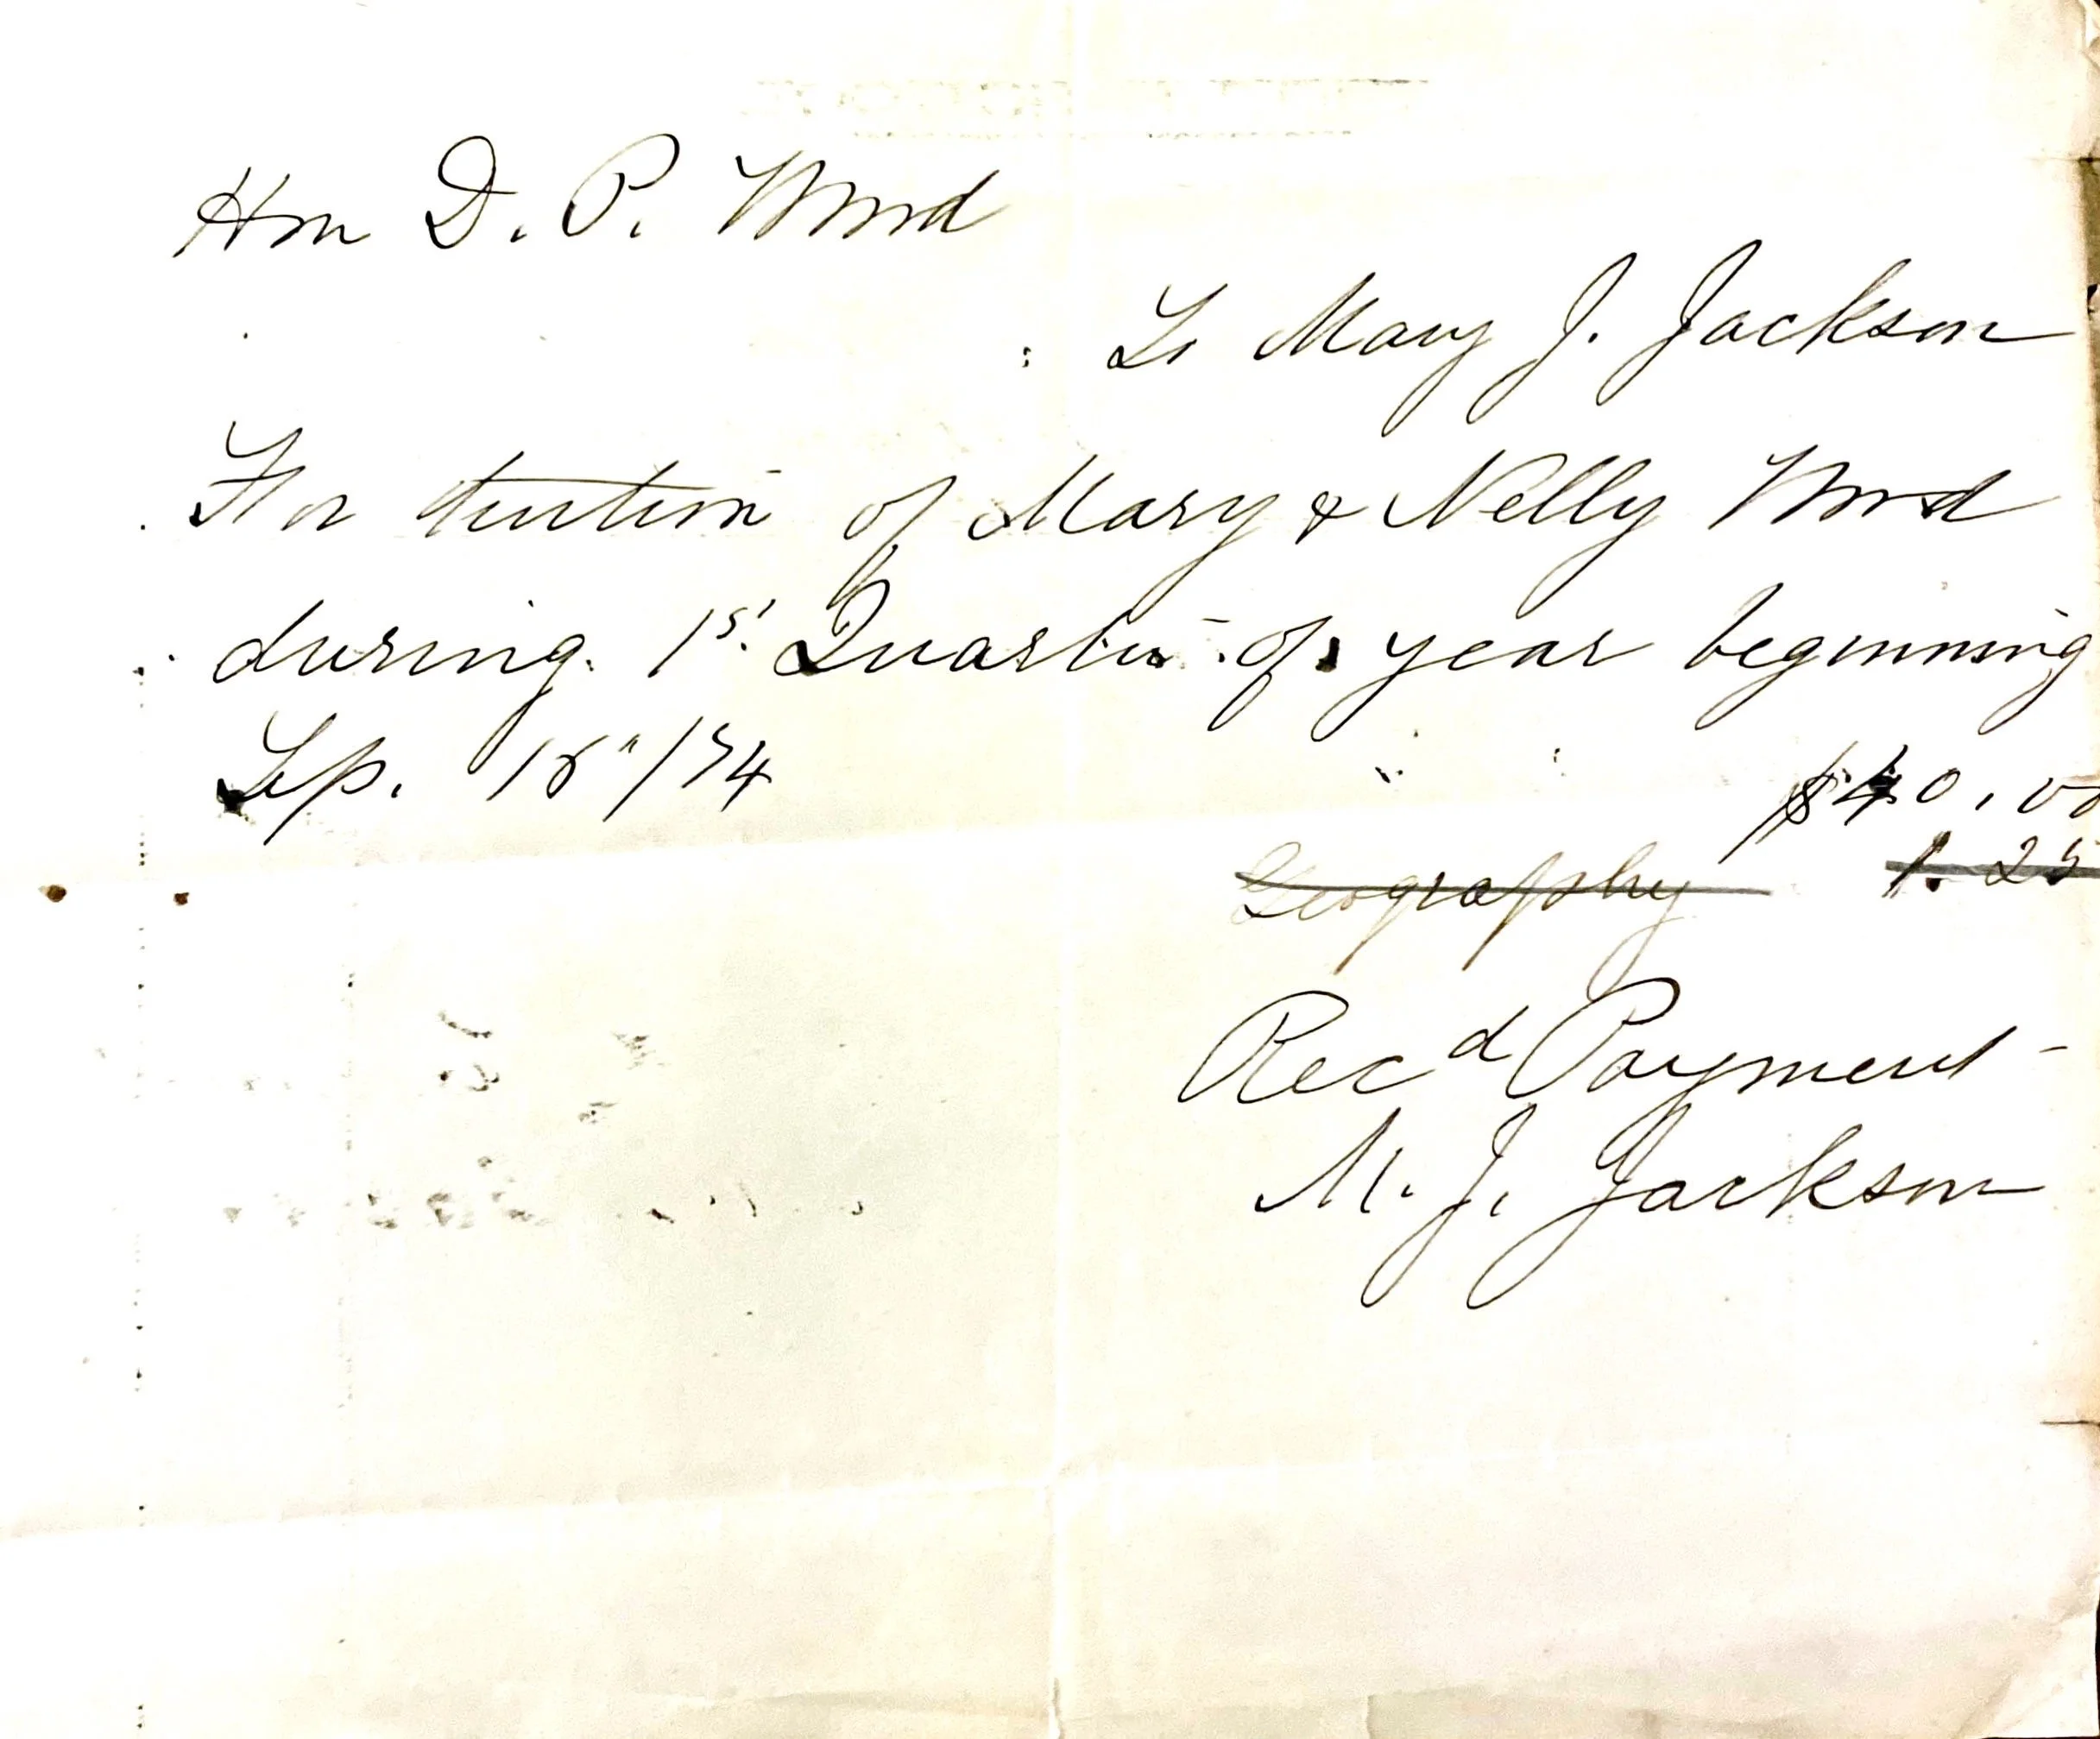 Hon D. P. Wood
To Mary J. Jackson
For tuition of Mary & Nelly Wood
during 1st Quarter of year beginning
Sep. 16"/74
$40.00
Geography 1.25
Recd Payment
M. J. Jackson